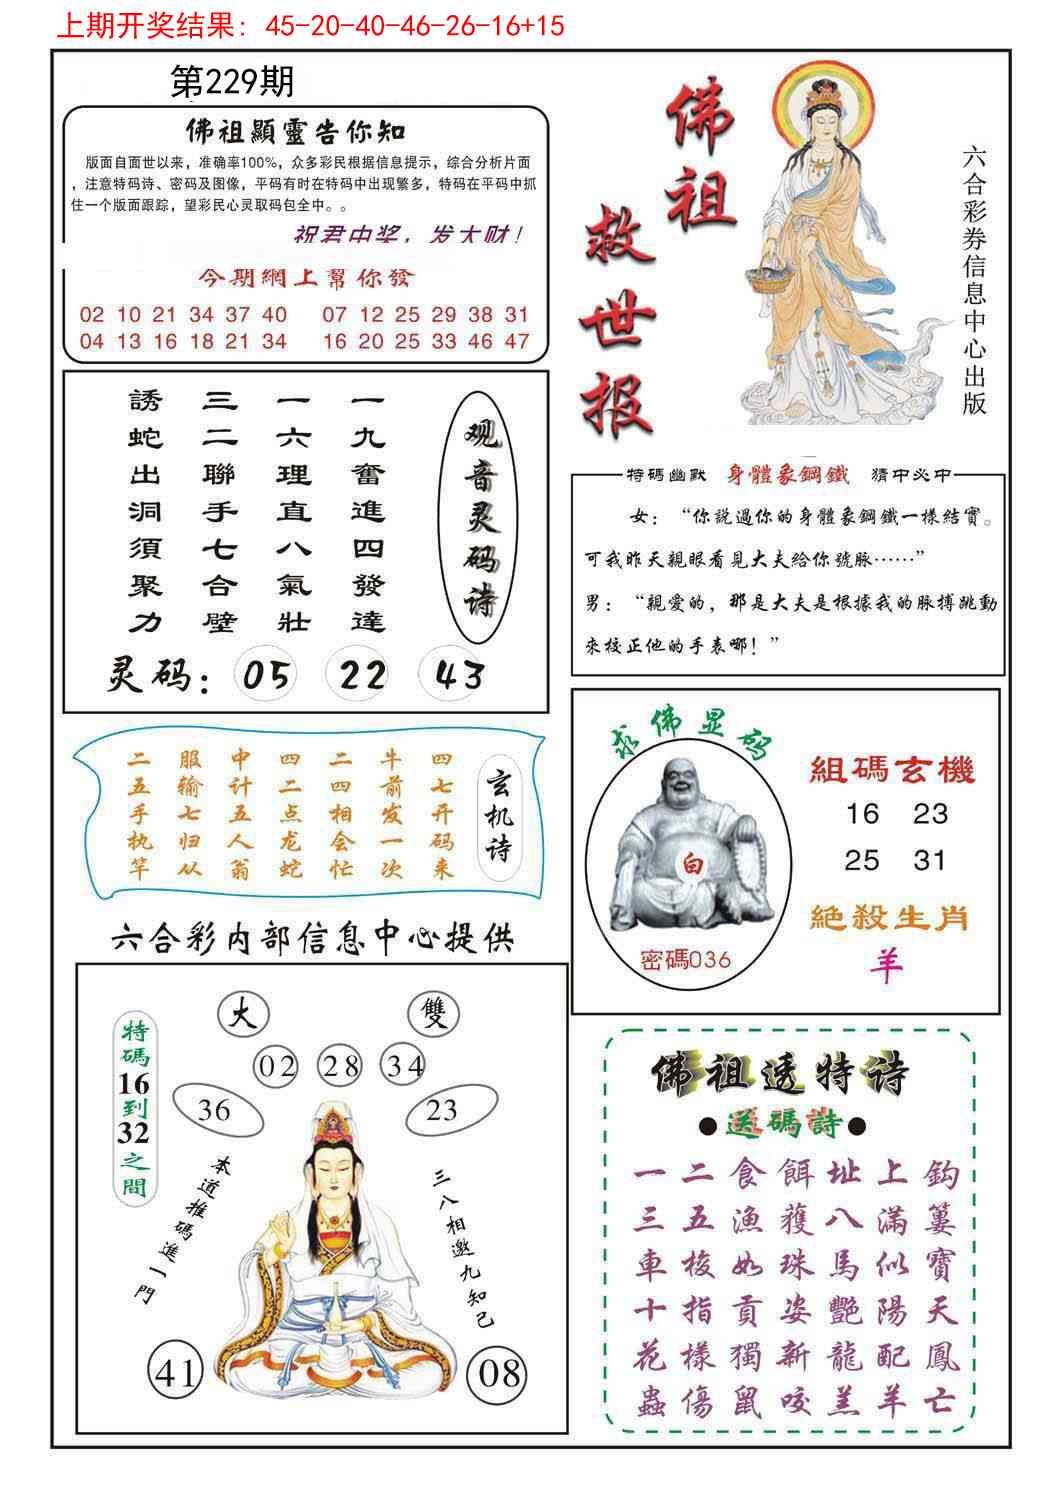 上期开奖结果: 45-20-40-46-26-16+15
第229期
佛祖顯靈告你知
版面自面世以来，准确率100%，众多彩民根据信息提示，综合分析片面
，注意特码诗、密码及图像，平码有时在特码中出现繁多，特码在平码中抓
住一个版面跟踪，望彩民心灵取码包全中。。
祝君中奖，发大财！
今期網上幫你發
02 10 21 34 37 40 07 12 25 29 38 31
04 13 16 18 21 34 16 20 25 33 46 47
佛祖
救世报
六合彩券信息中心出版
观音灵码诗
一九奮進四發達
一六理直八氣壯
三二聯手七合壁
誘蛇出洞須聚力
灵码：05 22 43
特碼幽默 身體象鋼鐵 猜中必中
女：“你説過你的身體象鋼鐵一樣結實。
可我昨天親眼看見大夫給你號脉……”
男：“親爱的，那是大夫是根據我的脉搏跳動
來校正他的手表哪！”
玄机诗
四七开码来
牛前发一次
二四相会忙
四二点龙蛇
中计五人翁
服输七归从
二五手执竿
求佛显码
白
密碼036
組碼玄機
16 23
25 31
絕殺生肖
羊
六合彩内部信息中心提供
大 雙
02 28 34
36 23
特碼16到32之間
本道推碼進一門
三八相邀九知己
41 08
佛祖透特诗
●送碼詩●
一二食餌址上鈎
三五漁獲八滿簍
車梭如珠馬似寶
十指貢姿艷陽天
花樣獨新龍配鳳
蟲傷鼠咬羔羊亡